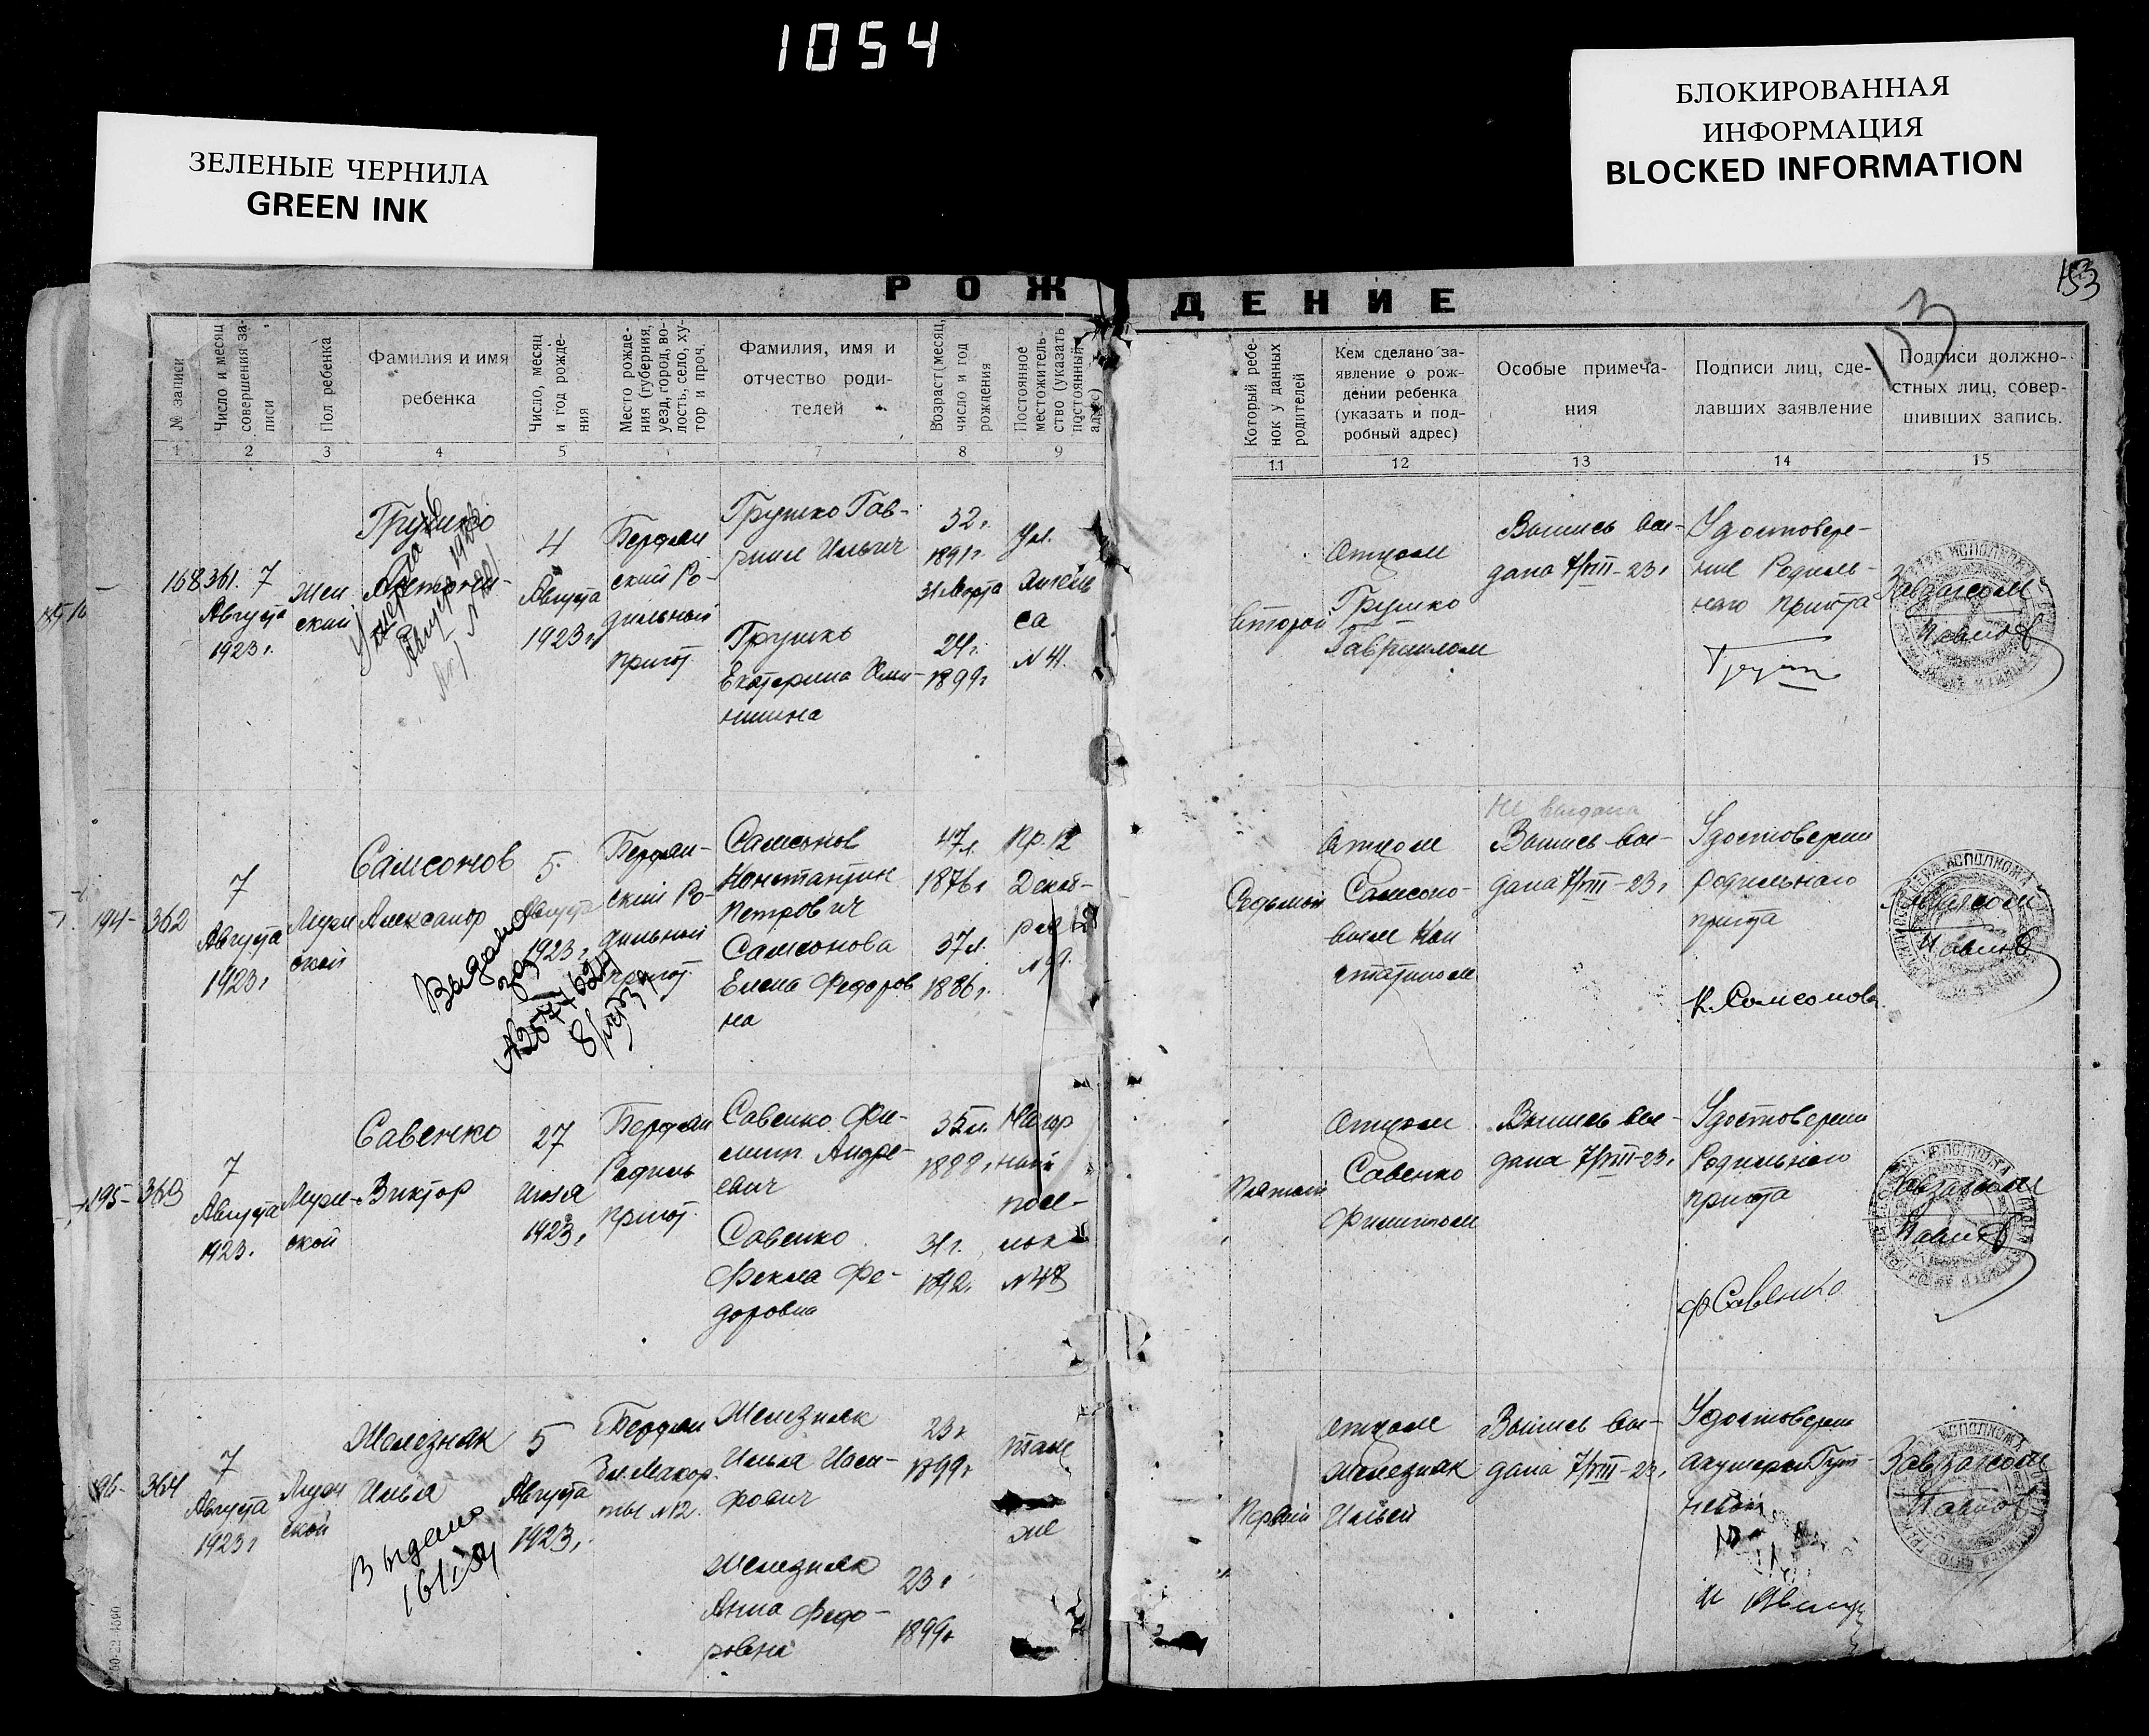 1054
ЗЕЛЕНЫЕ ЧЕРНИЛА
GREEN INK
БЛОКИРОВАННАЯ
ИНФОРМАЦИЯ
BLOCKED INFORMATION
153
53
РОЖДЕНИЕ
№ записи
Число и месяц
совершения за-
писи
Пол ребенка
Фамилия и имя
ребенка
Число, месяц
и год рожде-
ния
Место рожде-
ния (губерния,
уезд, город, во-
лость, село, ху-
тор и проч.
Фамилия, имя и
отчество роди-
телей
Возраст (месяц,
число и год
рождения
Постоянное
местожитель-
ство (указать
постоянный
адрес)
Который ребе-
нок у данных
родителей
Кем сделано за-
явление о рож-
дении ребенка
(указать и под-
робный адрес)
Особые примеча-
ния
Подписи лиц, сде-
лавших заявление
Подписи должно-
стных лиц, совер-
шивших запись.
1 2 3 4 5 7 8 9 11 12 13 14 15
168 361. 7
Августа
1923 г.
Жен
ский
Грушко
4
Августа
1923 г.
Бердян
ский Ро-
дильный
приют
Грушко Гав-
риил Ильич
Грушко
Екатерина
32 г.
1891 г.
31 Марта
24 г.
1899 г.
ул.
№ 41.
Второй
Отцом
Грушко
Гавриилом
Выпись вы-
дана 7/VIII-23 г
Удостовере-
ние Родиль-
ного приюта
Завзагсом
Павлов
194- 362
7
Августа
1923 г
Муж
ской
Самсонов
Александр
5
Августа
1923 г.
Выдано
Бердян-
ский Ро-
дильный
приют.
Самсонов
Константин
Петрович
Самсонова
Елена Федоров
на
47 л.
1876 г
37 л.
1886 г.
Пр. 12
Декаб-
Седьмой
Отцом
Самсоно-
вым Кон
стантином
Не выдана
Выпись вы-
дана 7/VIII-23 г
Удостоверен
Родильного
приюта
К. Самсонов
Завзагсом
Павлов
195- 363
7
Августа
1923.
Муж-
ской
Савенко
Виктор
27
Июля
1923 г
Бердян
Родиль
приют.
Савенко Фи-
липп Андре-
евич
Савенко
Фекла Фе-
доровна
35 л.
31 г.
1892 г
Нагор
ный
посе-
лок
№ 48
Пятый
Отцом
Савенко
Филиппом
Выпись вы-
дана 7/VIII-23 г
Удостоверен
Родильного
приюта
Ф Савенко
Завзагсом
Павлов
196- 364
7
Августа
1923 г
Муж
ской
Железняк
Илья
Выдано
16/I 34
5
Августа
1923 г.
Бердян
№ 12.
Железняк
Илья Иоси-
фович
Железняк
Анна Федо-
ровна
23 г
1899 г
23 г
1899 г
там
же
Первый
Отцом
Железняк
Ильей
Выпись вы-
дана 7/VIII-23 г
Удостоверен
акушерки
Завзагсом
Павлов